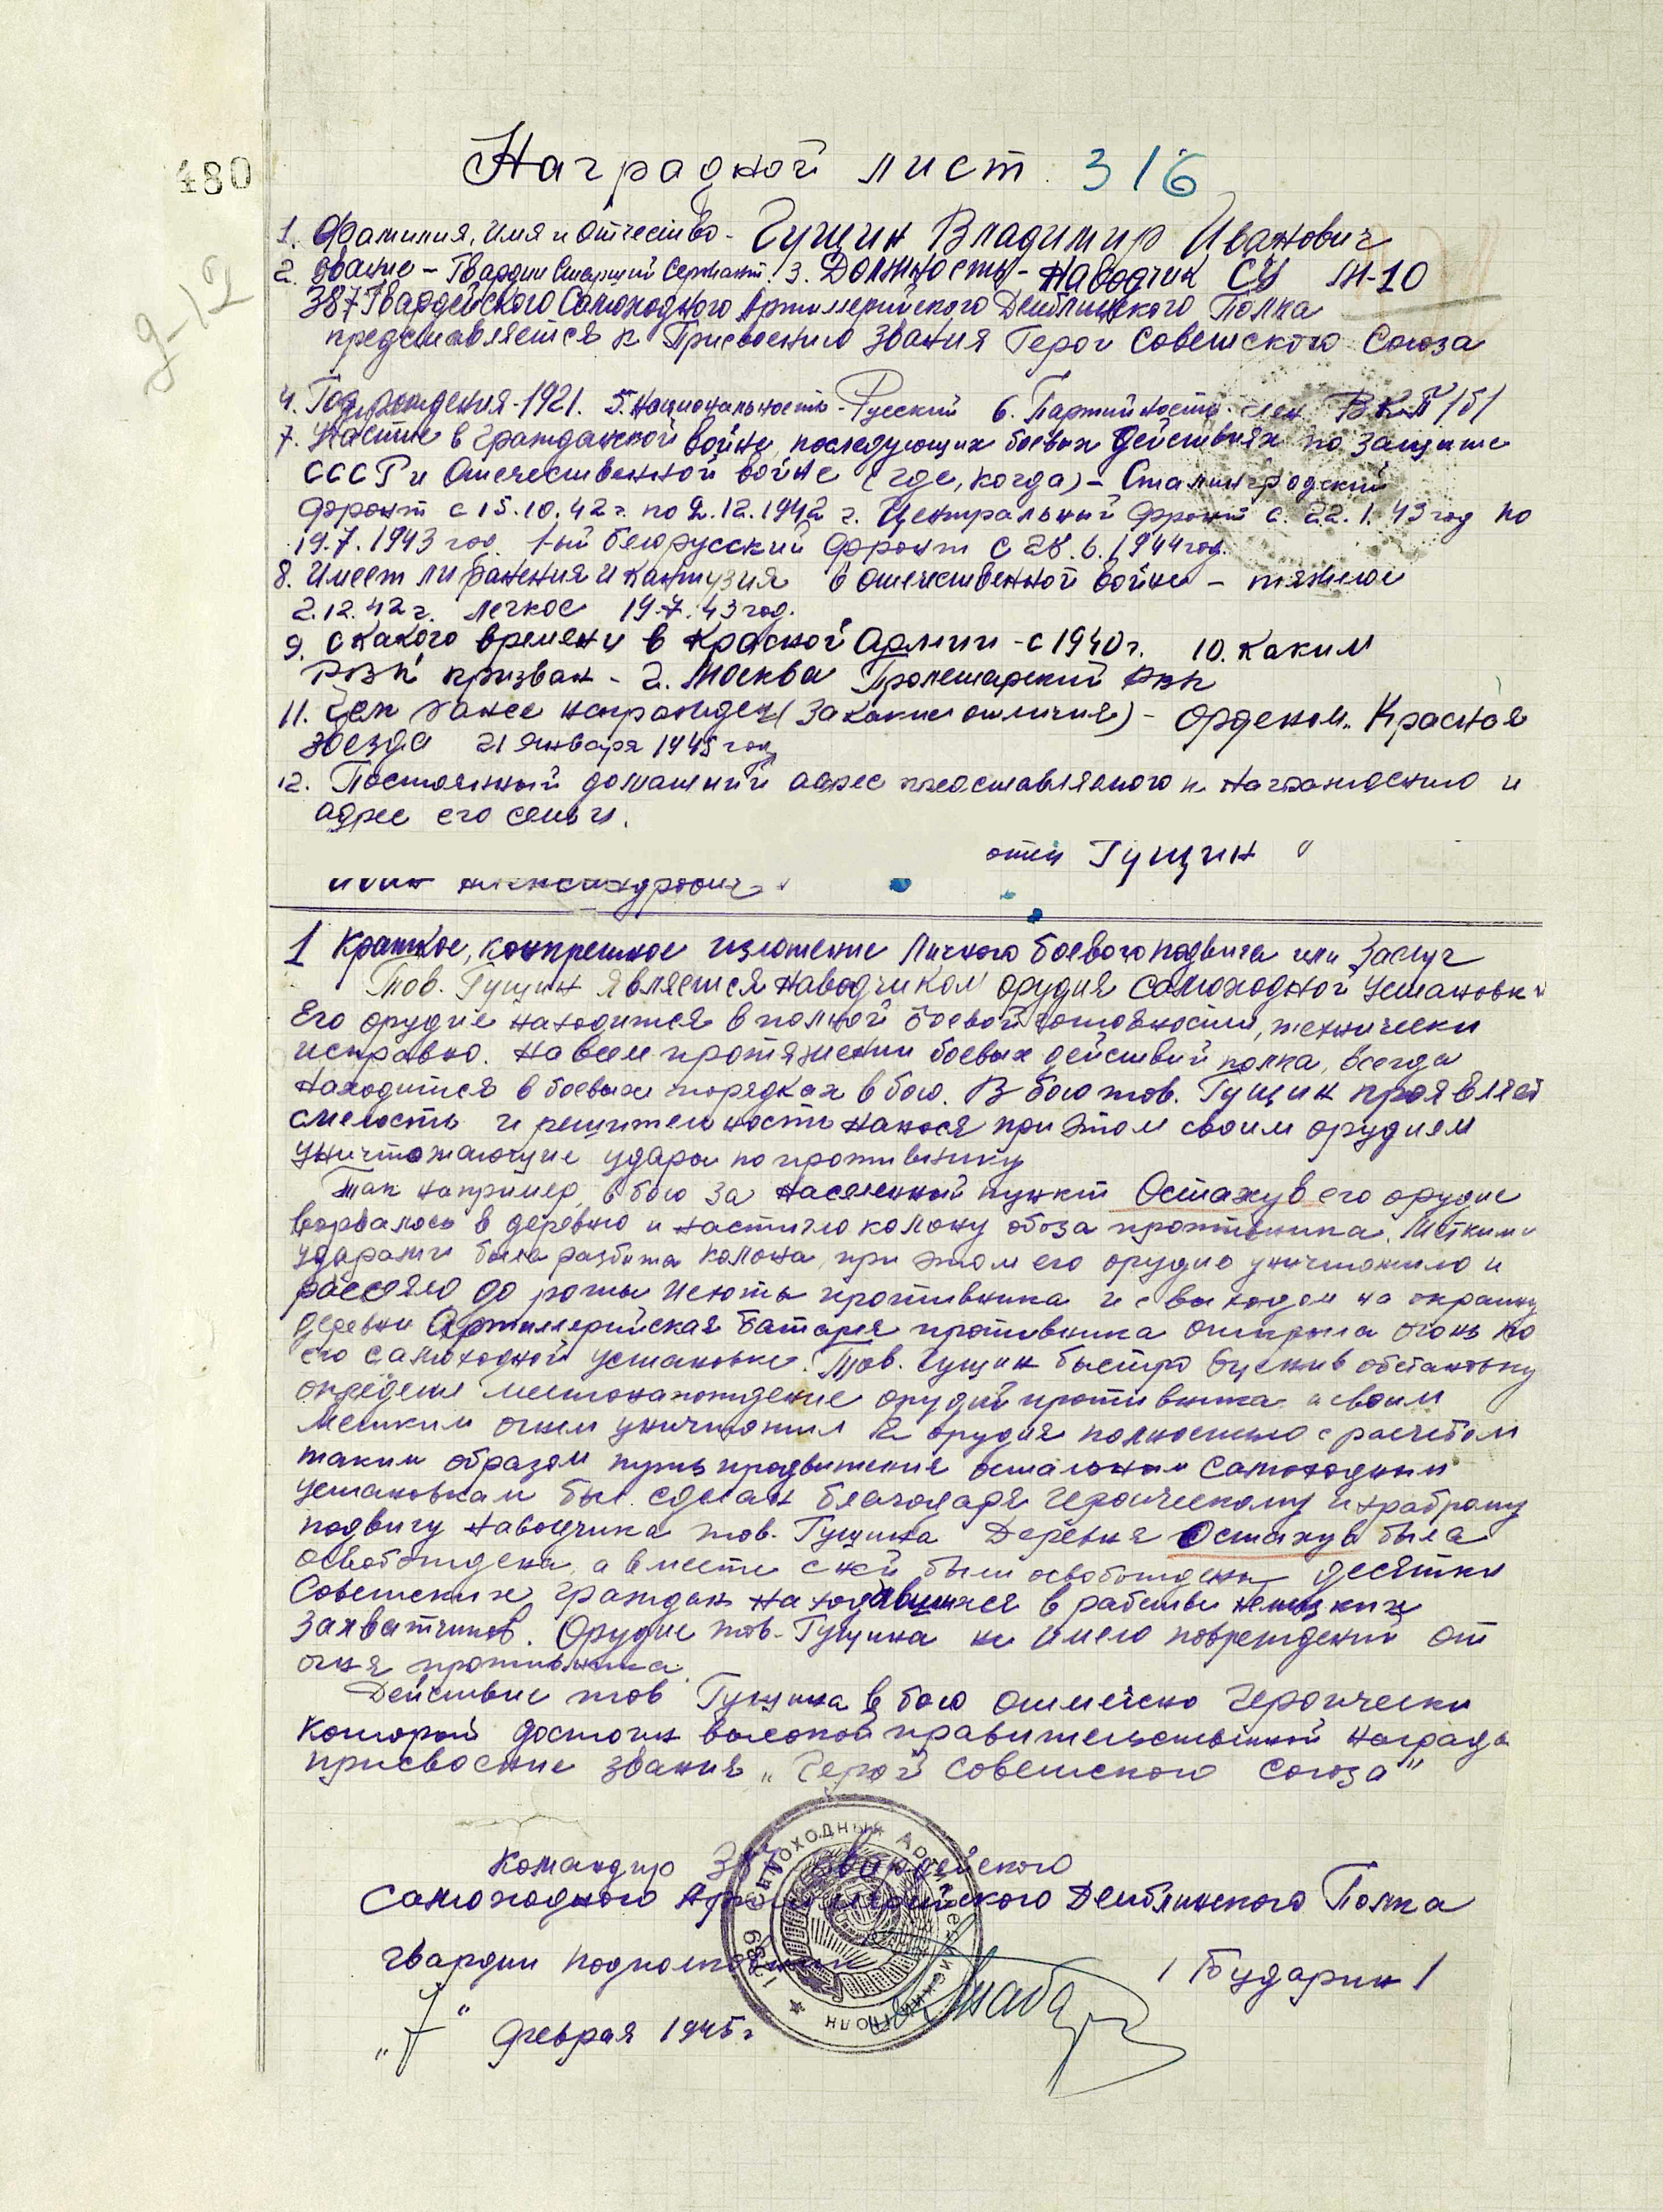 480
Наградной лист 316
1. Фамилия, имя и отчество - Гущин Владимир Иванович
2. Звание - Гвардии Старший Сержант. 3. Должность - наводчик СУ
387 Гвардейского Самоходного Артиллерийского Демблинского Полка
представляется к Присвоению звания Героя Советского Союза
4. Год рождения - 1921. 5. Национальность - Русский 6. Партийность - член ВКП/б/
7. Участие в гражданской войне, последующих боевых действиях по защите
СССР и Отечественной войне (где, когда) - Сталинградский
фронт с 15.10.42 г. по 2.12.1942 г. Центральный фронт с 22.1.43 год по
19.7.1943 год. 1-ый белорусский фронт с 28.6.1944 год.
8. Имеет ли ранения и контузия в отечественной войне - тяжелое
2.12.42 г. легкое 19.7.43 год.
9. С какого времени в Красной Армии - с 1940 г. 10. Каким
РВК призван - г. Москва Пролетарский РВК
11. Чем ранее награжден (за какие отличия) - орденом „Красная
звезда 21 января 1945 год
12. Постоянный домашний адрес представляемого к награждению и
адрес его семьи.
отец Гущин
Александрович
1 Краткое, конкретное изложение личного боевого подвига или заслуг
Тов. Гущин является наводчиком орудия самоходной установки
Его орудие находится в полной боевой готовности, технически
исправно. На всем протяжении боевых действий полка, всегда
находится в боевых порядках в бою. В бою тов. Гущин проявляет
смелость и решительность нанося при этом своим орудием
уничтожающие удары по противнику
Так например, в бою за населенный пункт Остахув его орудие
ворвалось в деревню и настигло колону обоза противника. Меткими
ударами была разбита колона, при этом его орудие уничтожило и
рассеяло до роты пехоты противника и с выходом на окраину
деревни Артиллерийская батарея противника открыла огонь по
его самоходной установке. Тов. Гущин быстро оценив обстановку
определил местонахождение орудий противника и своим
метким огнем уничтожил 2 орудия полностью с расчетом
таким образом путь продвижения остальным самоходным
установкам был сделан благодаря героическому и храброму
подвигу наводчика тов. Гущина Деревня Остахув была
освобождена, а вместе с ней были освобождены десятки
Советских граждан находившихся в рабстве немецких
захватчиков. Орудие тов. Гущина не имело повреждений от
огня противника.
Действие тов Гущина в бою отмечено героически
который достоин высокой правительственной награды
присвоение звания „Герой Советского Союза"
Командир 387 гвардейского
Самоходного Артиллерийского Демблинского Полка
гвардии подполковник / Бударин /
„7" февраля 1945 г
САМОХОДНЫЙ АРТИЛЛЕРИЙСКИЙ ПОЛК